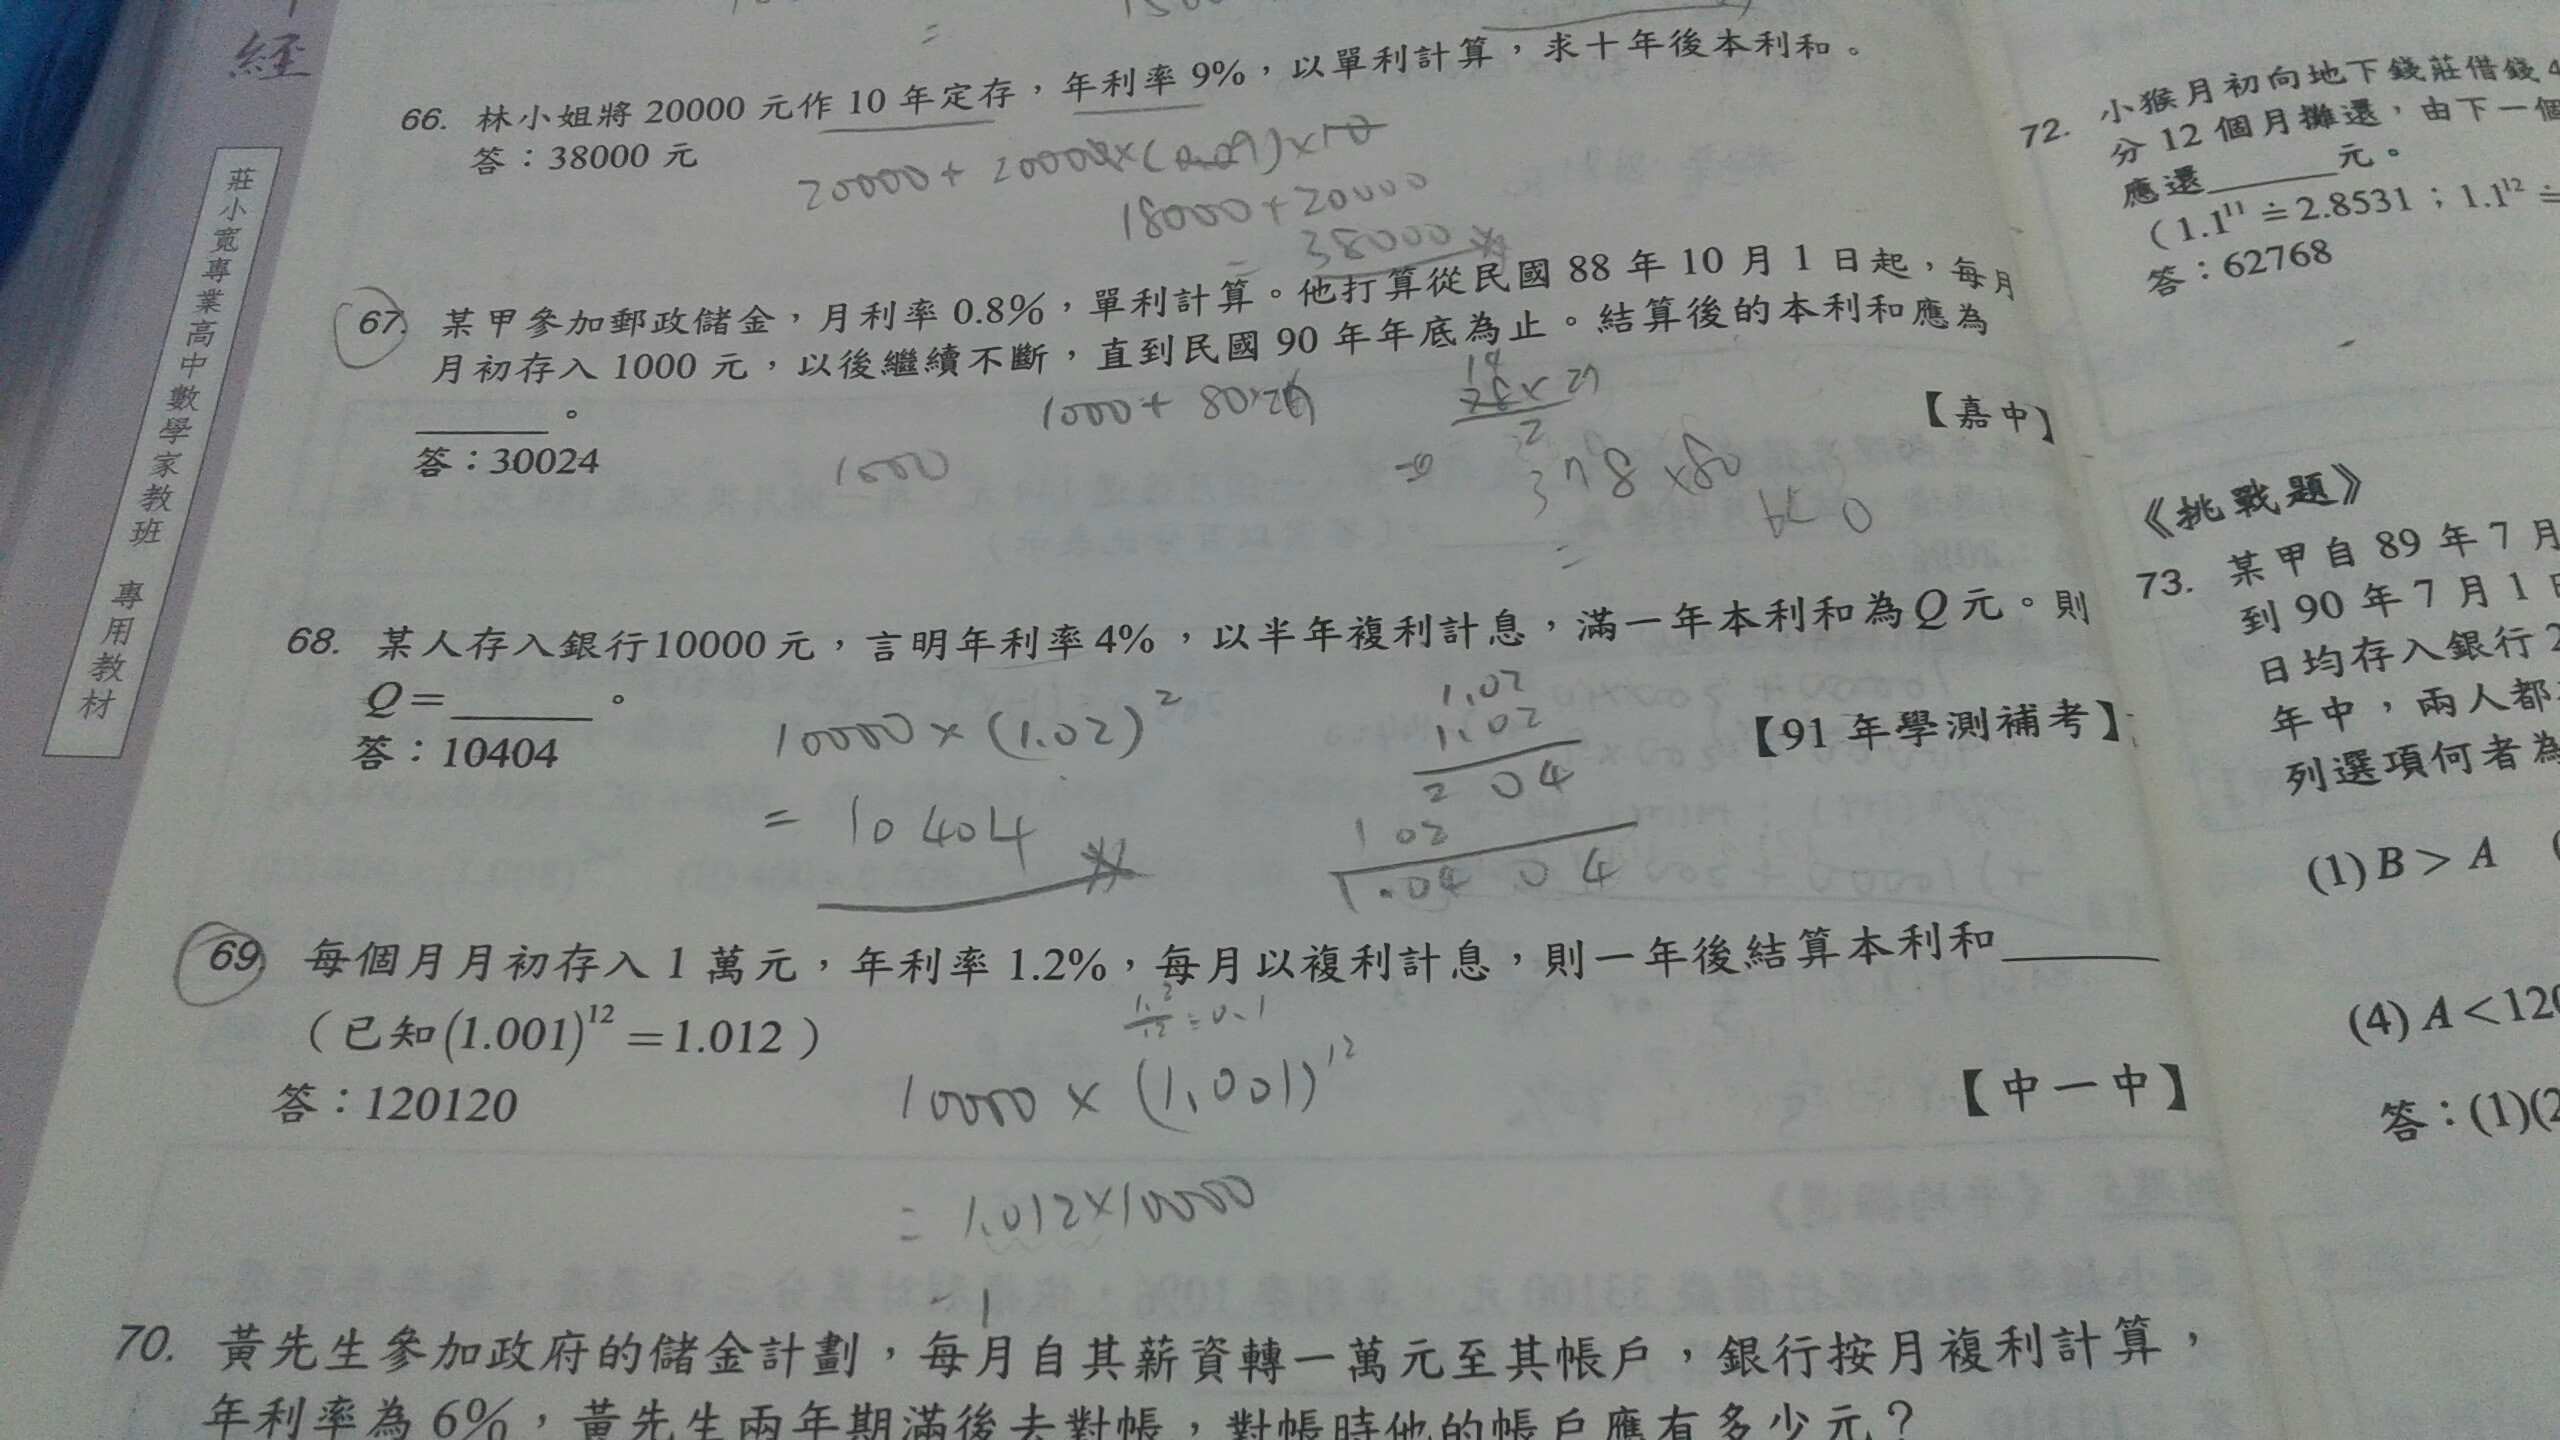 經
莊小寬專業高中數學家教班 專用教材
66. 林小姐將 20000 元作 10 年定存,年利率 9%,以單利計算,求十年後本利和。
答:38000 元
20000+20000×(0.09)×10
18000+20000
= 38000
67. 某甲參加郵政儲金,月利率 0.8%,單利計算。他打算從民國 88 年 10 月 1 日起,每月
月初存入 1000 元,以後繼續不斷,直到民國 90 年年底為止。結算後的本利和應為
______。
【嘉中】
答:30024
1000
378×80
68. 某人存入銀行10000元,言明年利率4%,以半年複利計息,滿一年本利和為Q元。則
Q=______。
【91 年學測補考】
答:10404
10000×(1.02)²
= 10404
1.02
1.02
204
102
1.0404
69. 每個月月初存入 1 萬元,年利率 1.2%,每月以複利計息,則一年後結算本利和______
(已知(1.001)¹²=1.012)
1.2/12=0.1
【中一中】
答:120120
10000×(1.001)¹²
= 1.012×10000
= 1
70. 黃先生參加政府的儲金計劃,每月自其薪資轉一萬元至其帳戶,銀行按月複利計算,
年利率為 6%,黃先生兩年期滿後去對帳,對帳時他的帳戶應有多少元?
72. 小猴月初向地下錢莊借錢 4
分 12 個月攤還,由下一個
應還______元。
(1.1¹¹≑2.8531;1.1¹²≑
答:62768
《挑戰題》
73. 某甲自 89 年 7 月
到 90 年 7 月 1 日
日均存入銀行 2
年中,兩人都
列選項何者為
(1) B > A (
(4) A<120
答:(1)(2